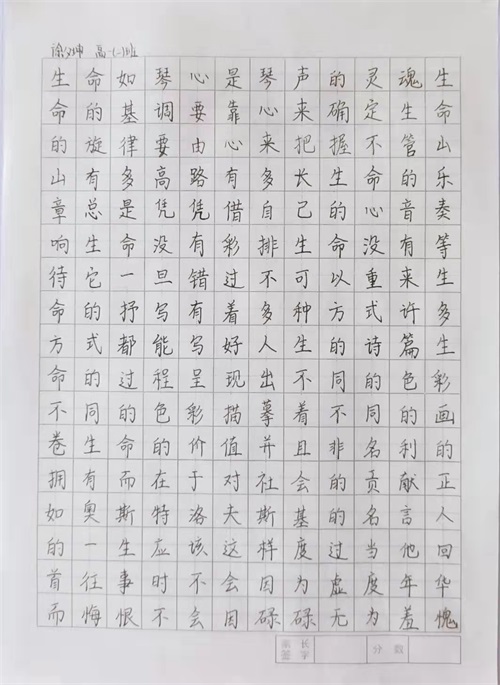 徐父坤 高一(一)班
生命如琴心是琴声的灵魂生
命的基调要靠心来确定生命
的旋律要由心来把握不管山
山有多高路有多长生命的乐
章总是凭凭借自己的心音奏
响生命没有彩排生命没有等
待它一旦错过不可以重来生
命的抒写有着多种方式许多
方式都能写好人生的诗篇生
命的过程呈现出不同的色彩
不同的色彩描摹着不同的画
卷生命的价值并且非名利的
拥有而在于对社会的贡献正
如奥斯特洛夫斯基的名言人
的一生应该这样度过当他回
首往事时不会因为虚度年华
而悔恨不会因碌碌无为羞愧
家长 签字 分数